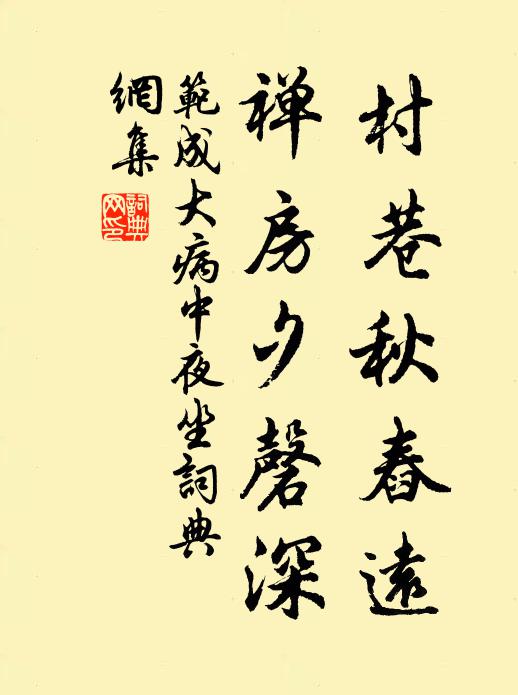 村巷秋舂遠
禅房夕磬深
範成大病中夜坐詞典
網集
詞典
网印